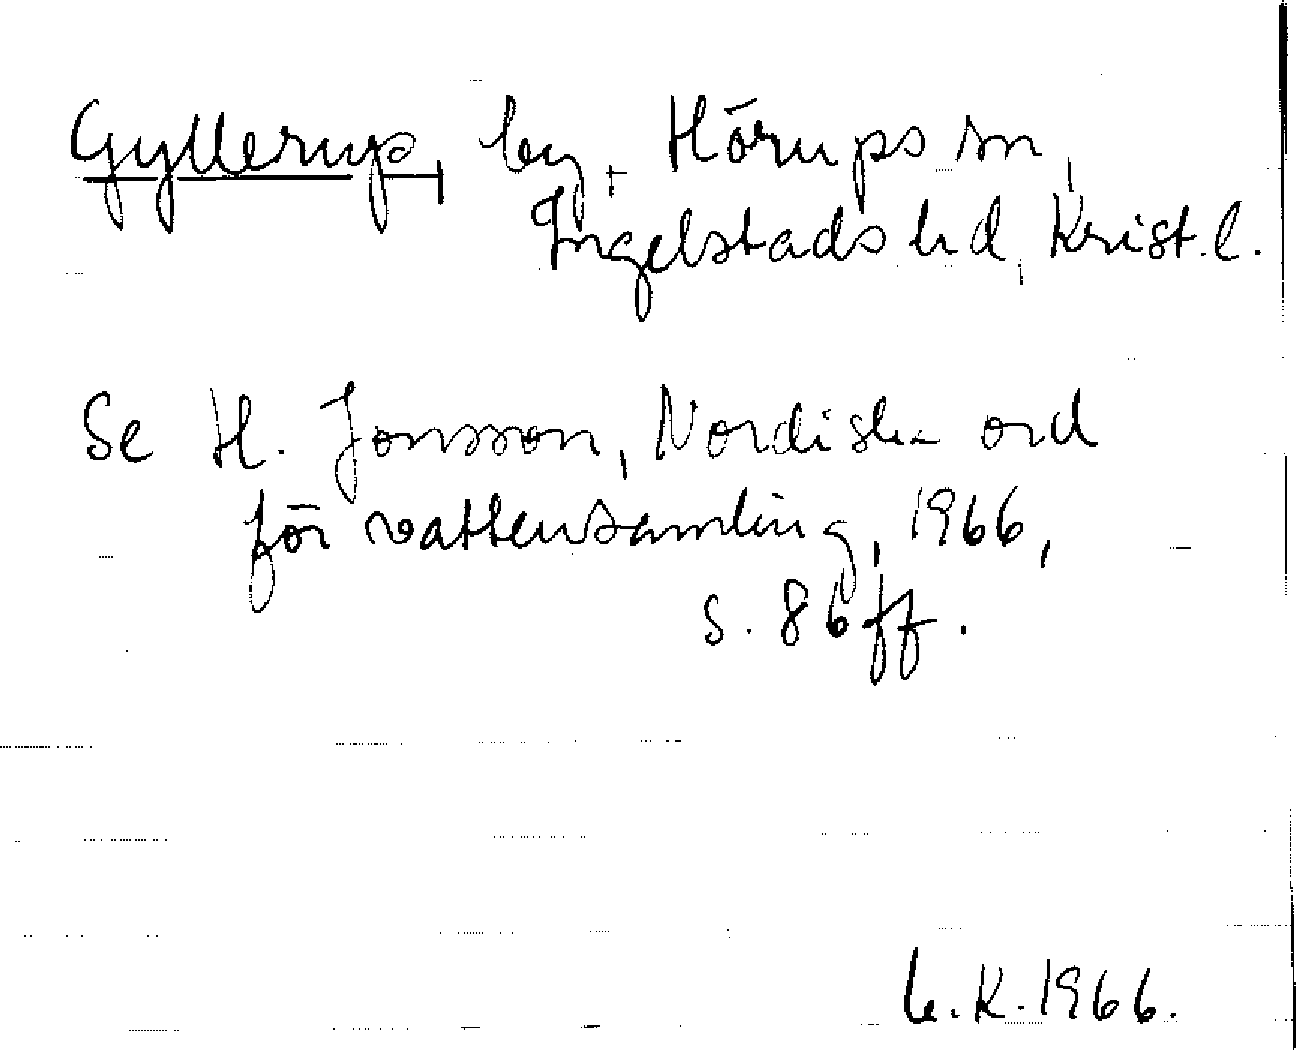 Gyllerup, by, Hörups sn,
Ingelstads hd, Krist.l.
Se H. Jonsson, Nordiska ord
för vattensamling, 1966,
s. 86 ff.
K. 1966.